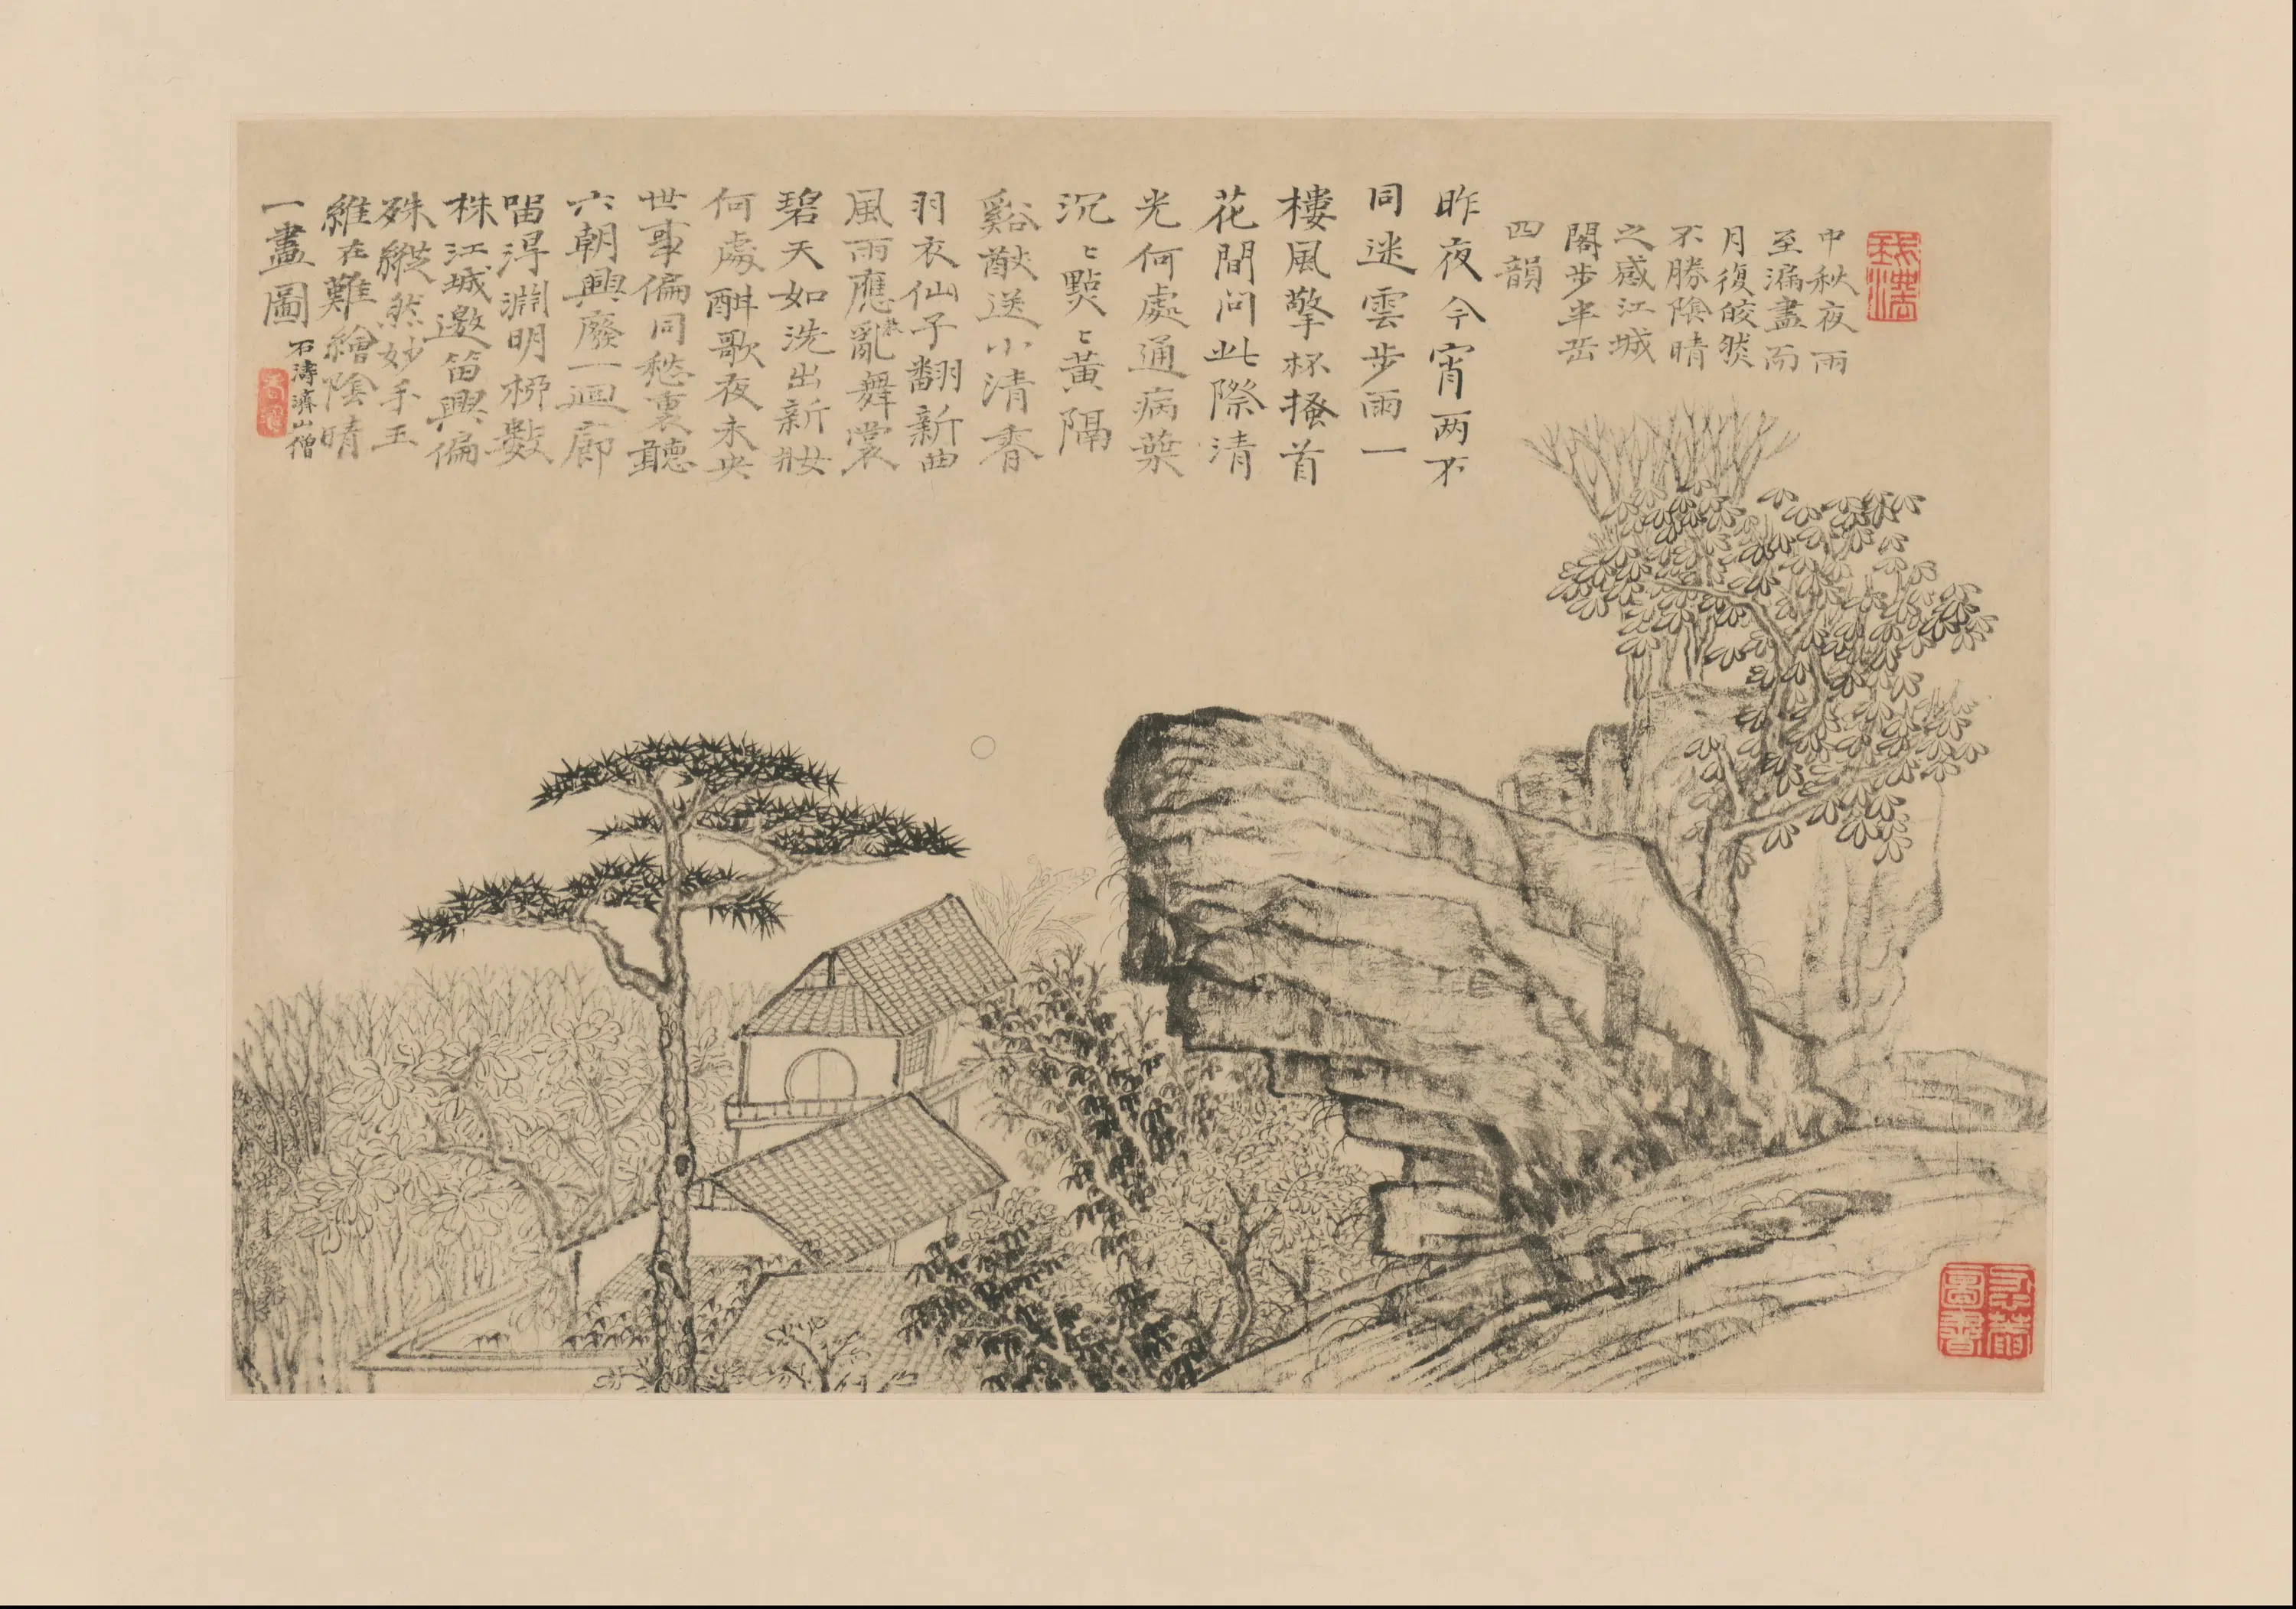 中秋夜雨
至漏盡而
月復皎然
不勝陰晴
之感江城
閣步半岳
四韻
昨夜今宵两不
同迷雲步雨一
樓風擎杯搔首
花間問此際清
光何處通病葉
沉〻點〻黃隔
谿猷送小清香
羽衣仙子翻新曲
風雨應教亂舞裳
碧天如洗出新妝
何處酣歌夜未央
世事偏同愁裏聽
六朝興廢一迴廊
留得淵明柳數
株江城邀笛興偏
殊縱然妙手王
維在難繪陰晴
一畫圖
石濤濟山僧